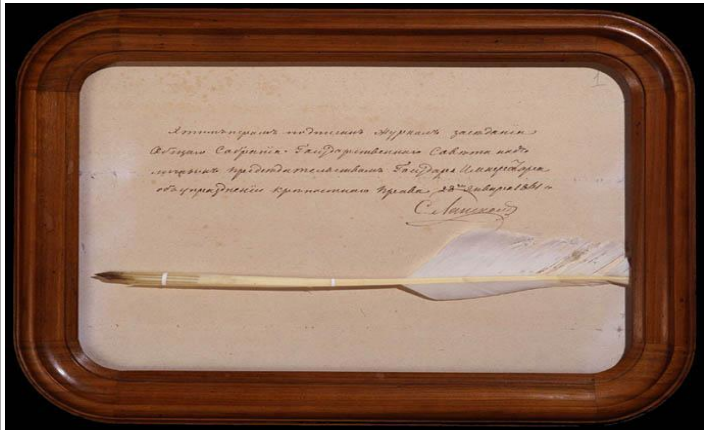 1
Этимъ перомъ подписанъ журналъ заседанія
Общаго Собранія Государственнаго Совета подъ
личнымъ председательствомъ Государя Императора
объ упраздненіи крепостнаго права, 28го Января 1861 г.
С. Ланской